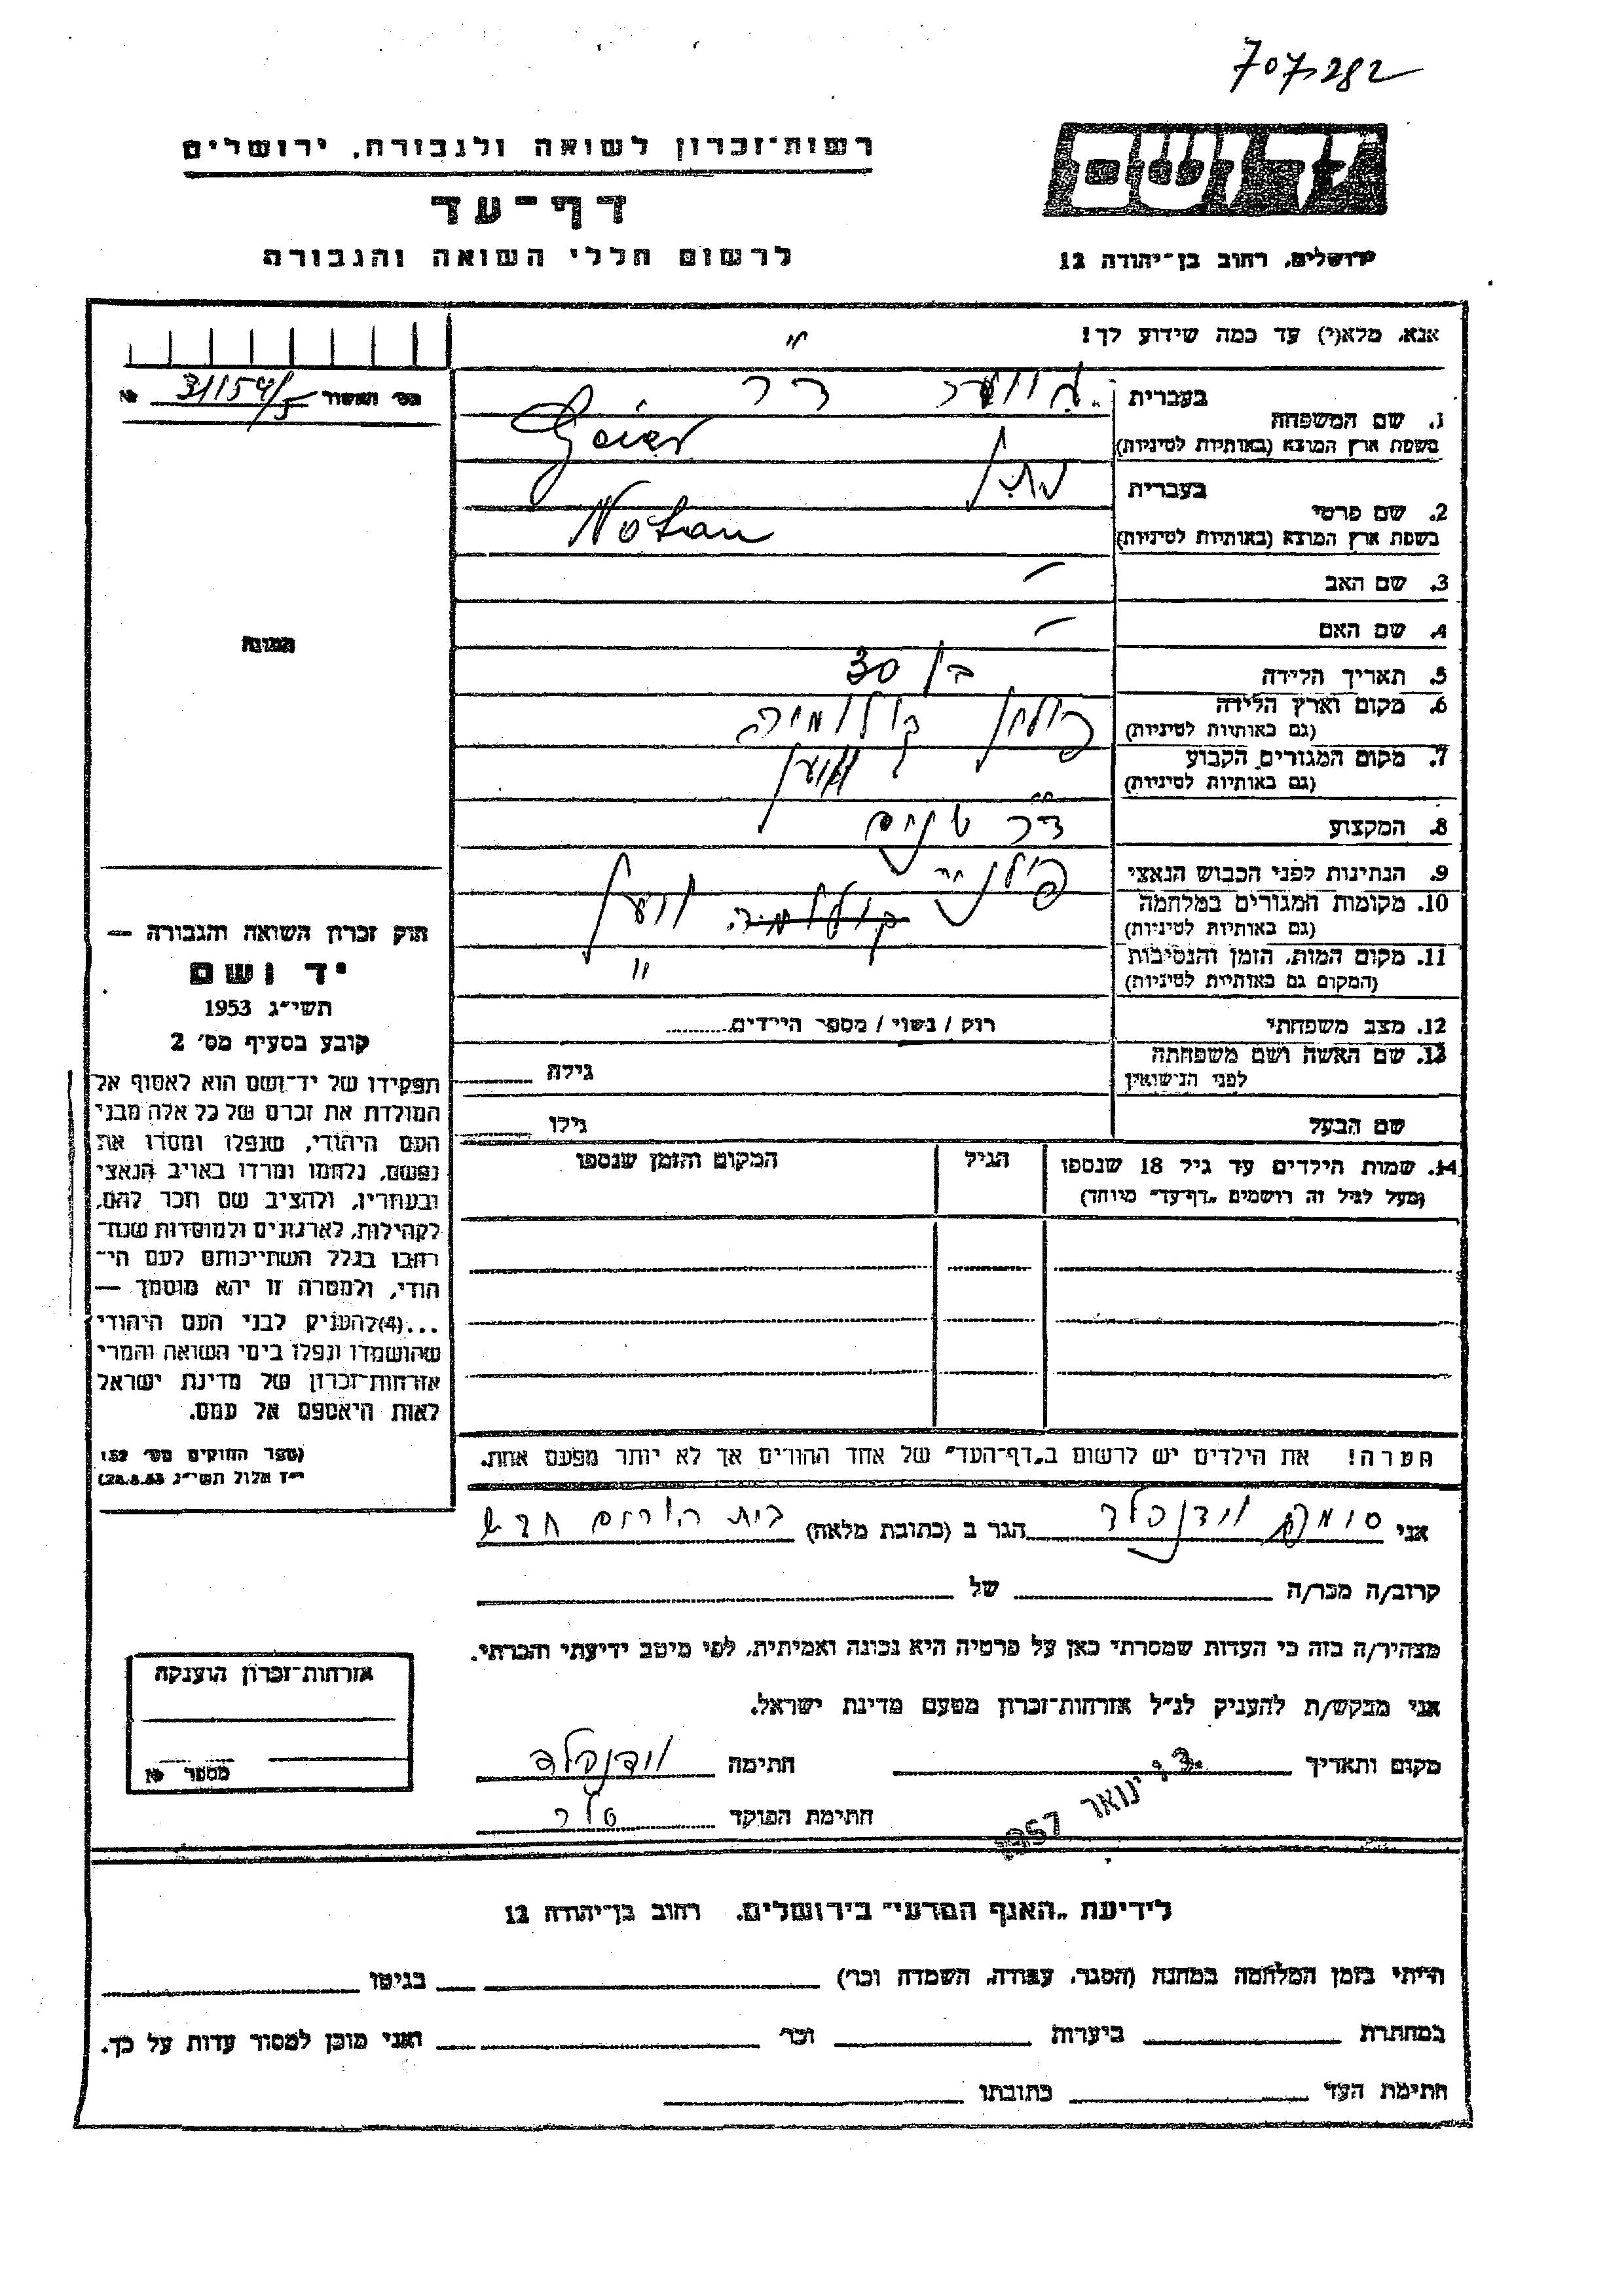 707282
יד ושם
רשות-זכרון לשואה ולגבורה, ירושלים
דף-עד
לרשום חללי השואה והגבורה
ירושלים, רחוב בן-יהודה 12
אנא, מלא(י) עד כמה שידוע לך!
מס' האשור 31154/5 №
בעברית ד"ר
1. שם המשפחה
בשפת ארץ המוצא (באותיות לטיניות) Goier
בעברית נתן
2. שם פרטי
בשפת ארץ המוצא (באותיות לטיניות) Notan
3. שם האב –
4. שם האם –
תמונה
5. תאריך הלידה בן 30
6. מקום וארץ הלידה פולין קולומיה
(גם באותיות לטיניות)
7. מקום המגורים הקבוע
(גם באותיות לטיניות)
8. המקצוע
9. הנתינות לפני הכבוש הנאצי פולנית
10. מקומות המגורים במלחמה קולומיה
(גם באותיות לטיניות)
11. מקום המות, הזמן והנסיבות "
(המקום גם באותיות לטיניות)
12. מצב משפחתי רוק / נשוי / מספר הילדים
13. שם האשה ושם משפחתה גילה
לפני הנישואין
שם הבעל גילו
14. שמות הילדים עד גיל 18 שנספו הגיל המקום והזמן שנספו
(מעל לגיל זה רושמים „דף-עד" מיוחד)
חוק זכרון השואה והגבורה —
יד ושם
תשי"ג 1953
קובע בסעיף מס' 2
תפקידו של יד-ושם הוא לאסוף אל
המולדת את זכרם של כל אלה מבני
העם היהודי, שנפלו ומסרו את
נפשם, נלחמו ומרדו באויב הנאצי
ובעוזריו, ולהציב שם וזכר להם,
לקהילות, לארגונים ולמוסדות שנח-
רבו בגלל השתייכותם לעם הי-
הודי, ולמטרה זו יהא מוסמך —
...(4)להעניק לבני העם היהודי
שהושמדו ונפלו בימי השואה והמרי
אזרחות-זכרון של מדינת ישראל
לאות היאספם אל עמם.
(ספר החוקים מס' 132
י"ז אלול תשי"ג 28.8.53)
הערה! את הילדים יש לרשום ב„דף-העד" של אחד ההורים אך לא יותר מפעם אחת.
אני וידנפלד הגר ב (כתובת מלאה) בית חדש
קרוב/ה מכר/ה של
מצהיר/ה בזה כי העדות שמסרתי כאן על פרטיה היא נכונה ואמיתית, לפי מיטב ידיעתי והכרתי.
אני מבקש/ת להעניק לנ"ל אזרחות-זכרון מטעם מדינת ישראל.
מקום ותאריך ינואר 1957 חתימה וידנפלד
חתימת הפוקד
אזרחות-זכרון הוענקה
מספר №
לידיעת „האגף המדעי" בירושלים, רחוב בן-יהודה 12
הייתי בזמן המלחמה במחנה (הסגר, עבודה, השמדה וכו') בגיטו
במחתרת ביערות וכו' ואני מוכן למסור עדות על כך.
חתימת העד כתובתו